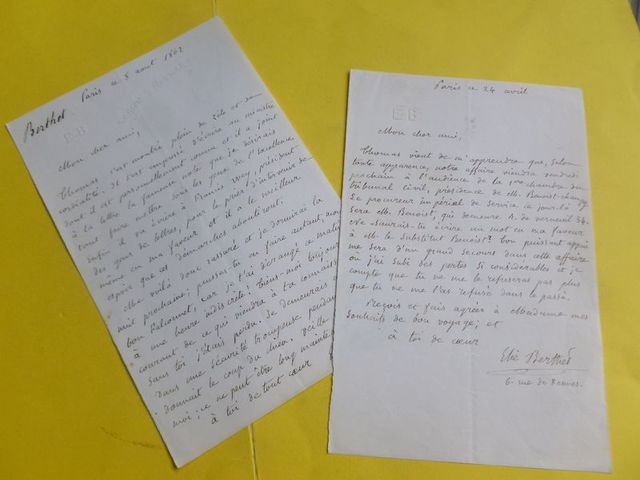 Berthet
Paris ce 8 aout 1862
Mon cher ami,
Thomas s'est montré plein de zèle et de
cordialité. Il s'est empressé d'écrire au ministre
dont il est personnellement connu et il a joint
à la lettre la fameuse note que je désirais
tant faire mettre sous les yeux de l'Excellence.
Enfin il va écrire à Francis Wey, président
des gens de lettres, pour le prier d'intervenir
même en ma faveur et il a le meilleur
espoir que ces démarches aboutiront.
Me voilà donc rassuré et je dormirai la
nuit prochaine; puisses-tu en faire autant, mon
bon car je t'ai dérangé ce matin
à une heure indiscrète! Tiens-moi toujours
courant de ce qui viendra à ta connaissance
Sans toi j'étais perdu. Je demeurais
dans une sécurité trompeuse pendant
donnait le coup du Veille
moi; ce ne peut être long maintenant
à toi de tout cœur
EB
Paris ce 24 avril
Mon cher ami,
Thomas vient de m'apprendre que, selon
toute apparence, notre affaire viendra vendredi
prochain à l'audience de la 1re chambre du
tribunal civil, présidence de Mr. Benoit-Champy
Le procureur impérial de service ce jour-là
sera Mr. Benoist, qui demeure R. de Verneuil 34.
Ne saurais-tu écrire un mot en ma faveur
à Mr le Substitut Benoist? Ton puissant appui
me sera d'un grand secours dans cette affaire
où j'ai subi des pertes si considérables et je
compte que tu ne me le refuseras pas plus
que tu ne me l'as refusé dans le passé.
Reçois et fais agréer à Madame mes
souhaits de bon voyage; et
à toi de cœur
Elie Berthet
6. rue de Rennes.